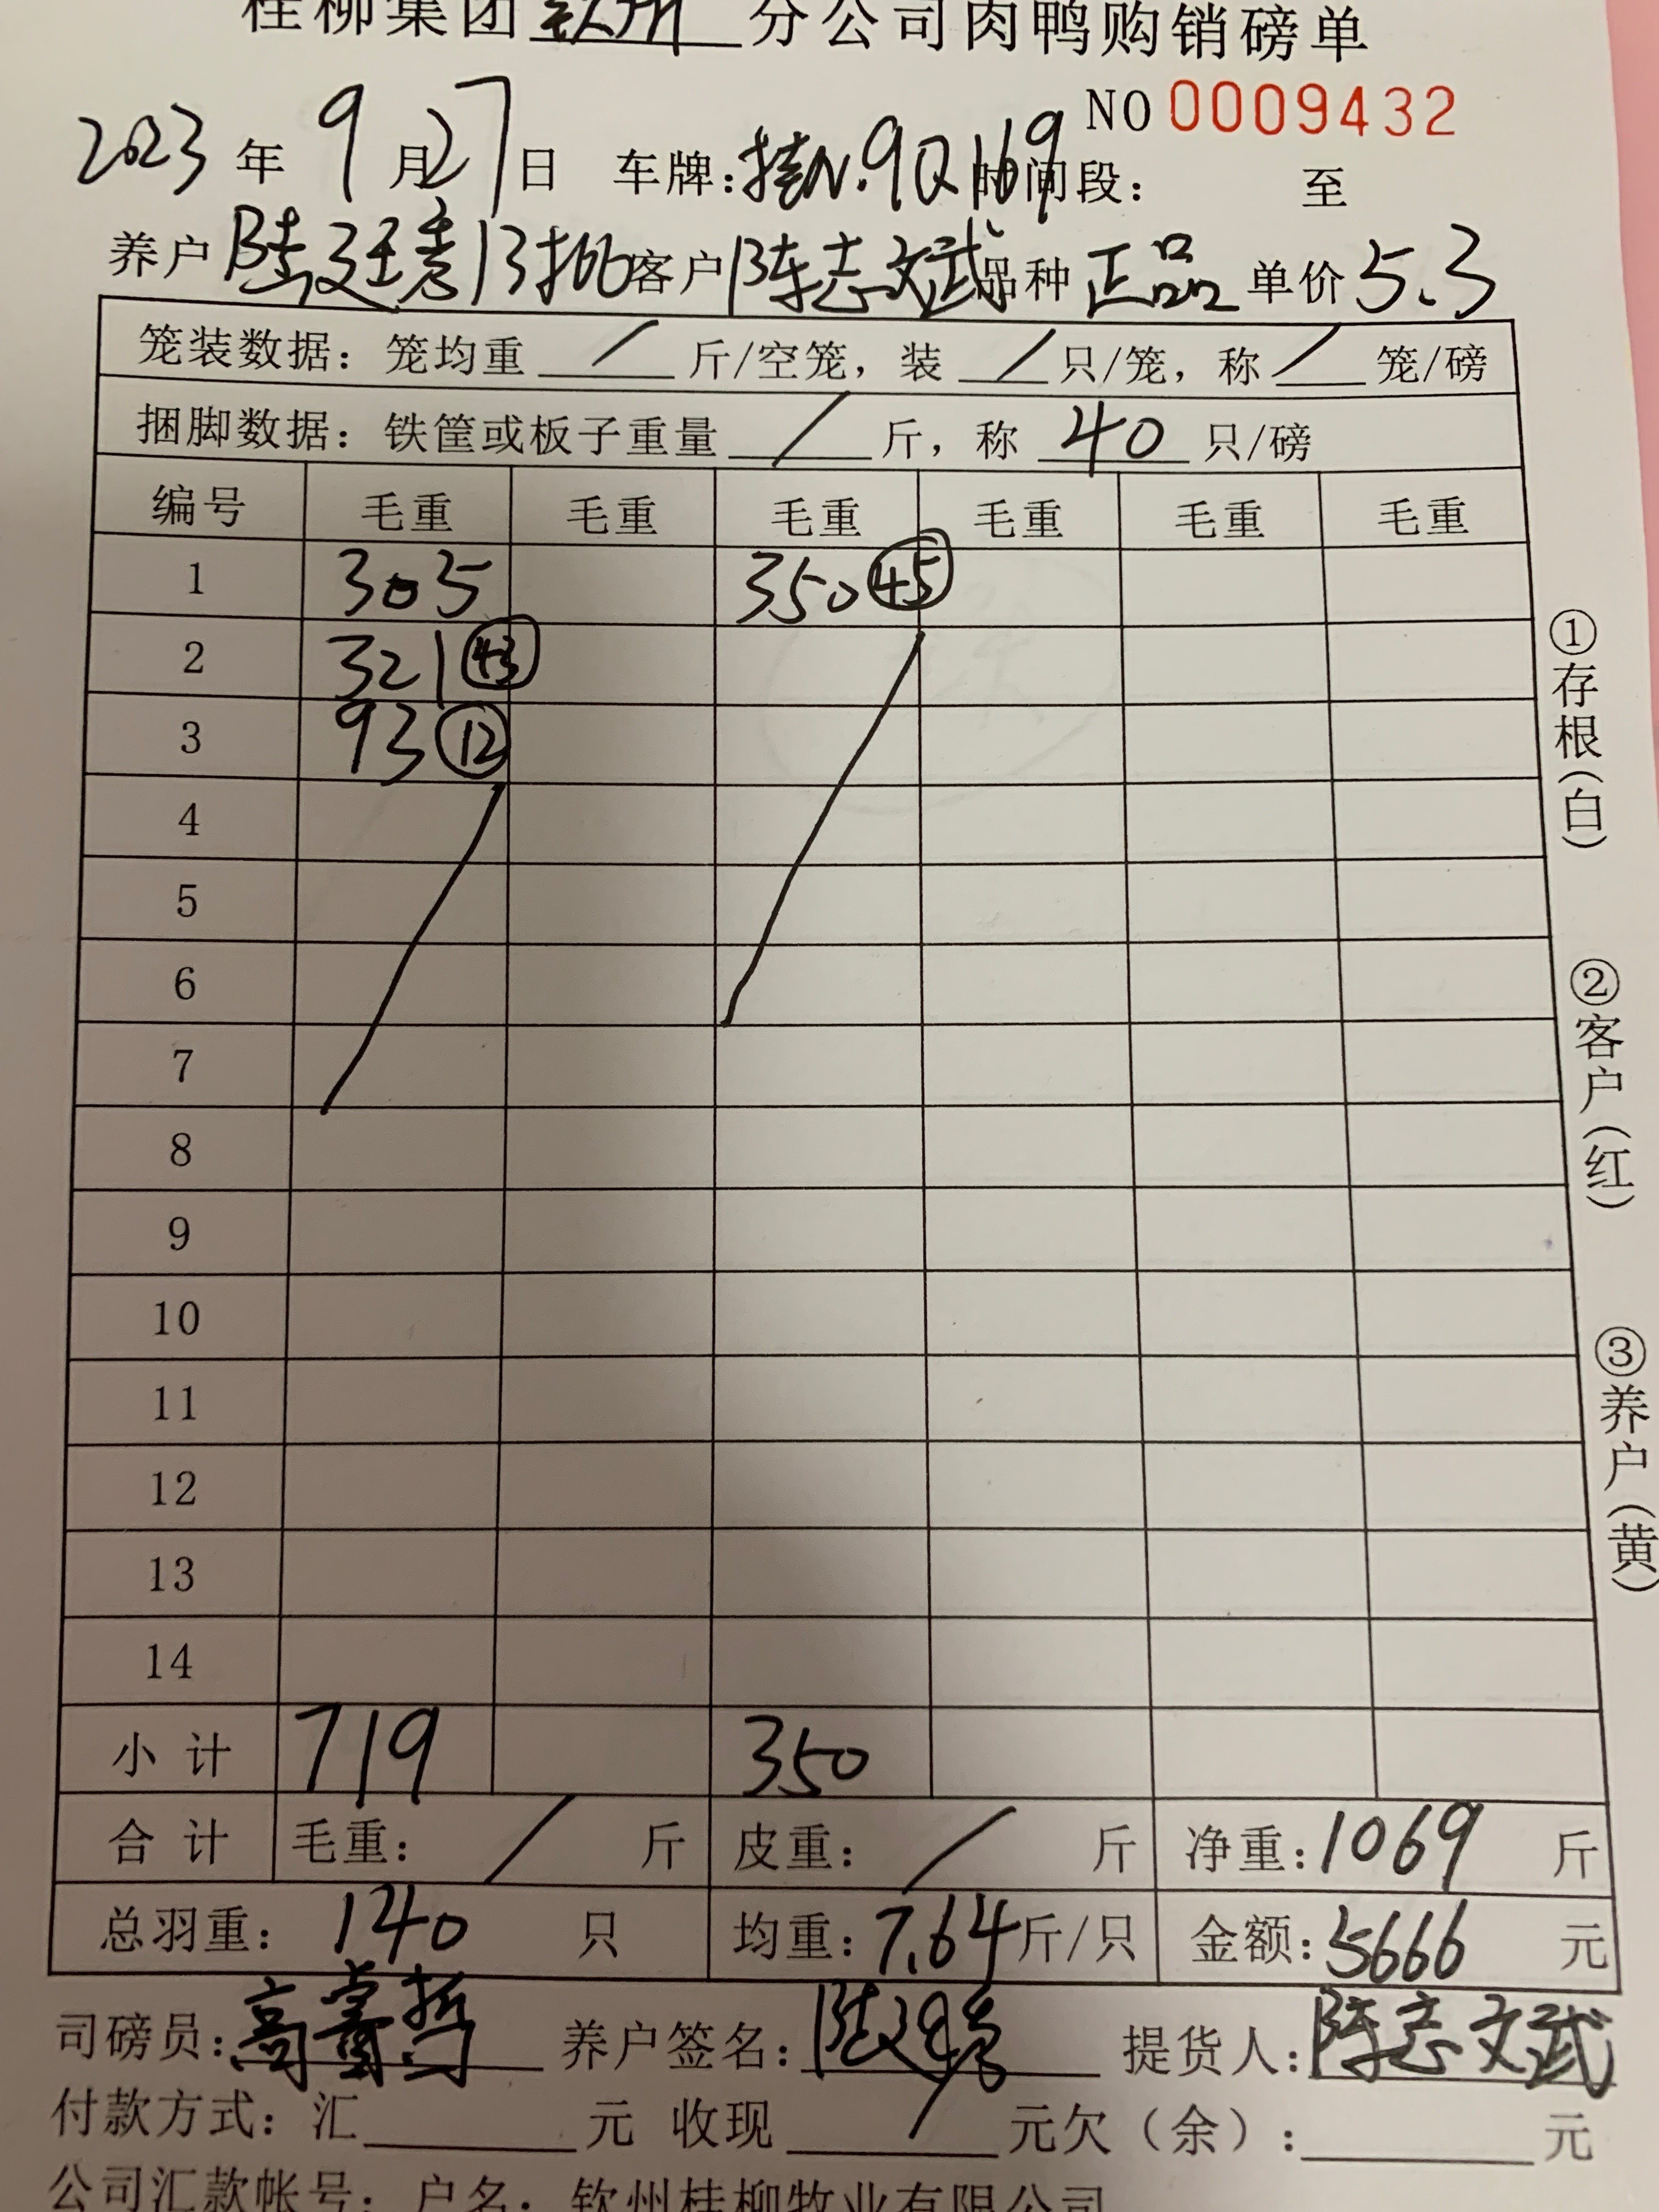 桂柳集团钦州分公司肉鸭购销磅单
NO 0009432
2023年9月27日 车牌:桂N.9Q169 时间段: 至
养户 陆廷秀13批 客户 陈志文武 品种 正品 单价 5.3
笼装数据: 笼均重 / 斤/空笼, 装 / 只/笼, 称 / 笼/磅
捆脚数据: 铁筐或板子重量 / 斤, 称 40 只/磅
编号 毛重 毛重 毛重 毛重 毛重 毛重
1 305 350 ㊺
2 321 ㊸
3 93 ⑫
4
5
6
7
8
9
10
11
12
13
14
小计 719 350
合计 毛重: / 斤 皮重: / 斤 净重: 1069 斤
总羽重: 140 只 均重: 7.64 斤/只 金额: 5666 元
司磅员: 高 哲 养户签名: 提货人: 陈志文武
付款方式: 汇 元 收现 / 元欠(余): 元
公司汇款帐号: 户名: 钦州桂柳牧业有限公司
①存根(白)
②客户(红)
③养户(黄)